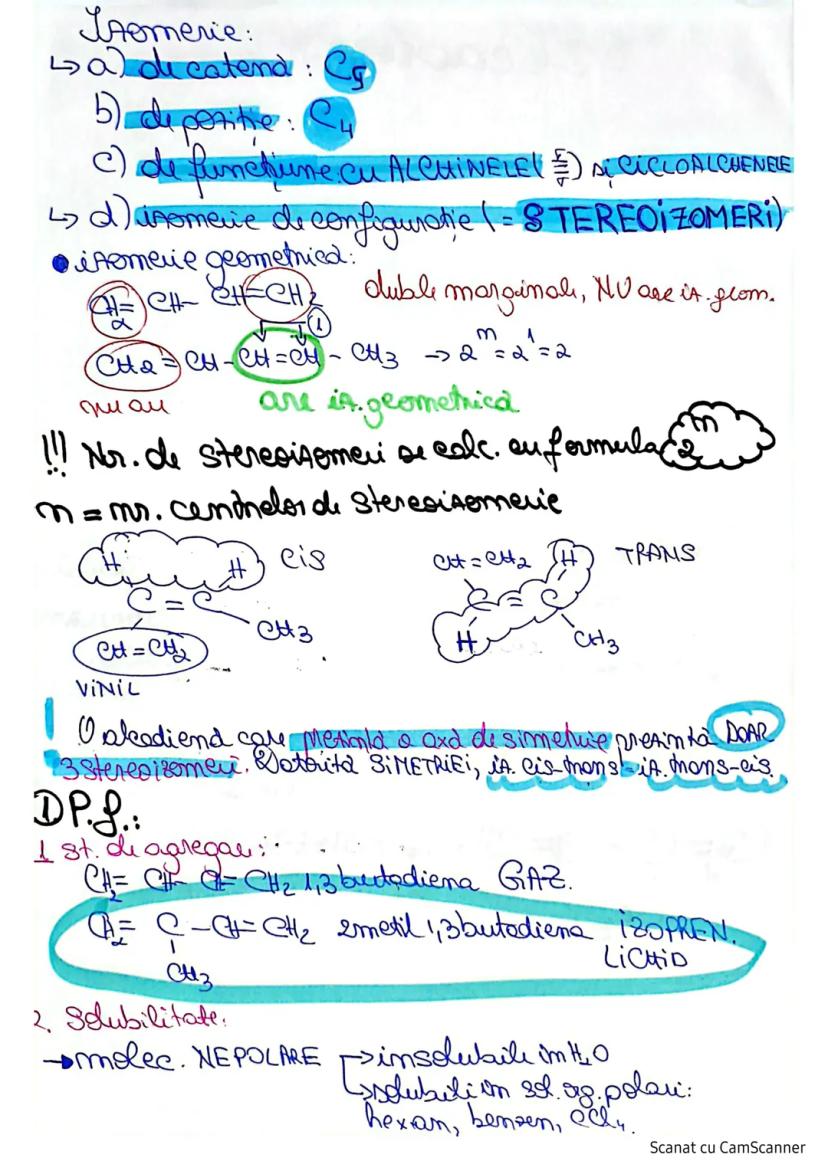 Izomerie:
↳ a) de catenă: C5
b) de poziție: C4
c) de funcțiune cu ALCHINELE (≡) și CICLOALCHENELE
↳ d) izomerie de configurație (= STEREOIZOMERI)
• izomerie geometrică:
CH2= CH- CH=CH2 duble marginale, NU are iz. geom.
1
CH2 = CH - CH = CH - CH3 → 2^n = 2^1 = 2
nu au are iz. geometrică
!!! Nr. de stereoizomeri se calc. cu formula 2^n
n = nr. centrelor de stereoizomerie
H H cis CH=CH2 H TRANS
C = C C = C
CH=CH2 CH3 H CH3
VINIL
! O alcadienă care prezintă o axă de simetrie prezintă DOAR
3 stereoizomeri. Datorită SIMETRIEI, iz. cis-trans = iz. trans-cis.
① P.f.:
1 St. de agregare:
CH2= CH- CH= CH2 1,3 butadiena GAZ.
CH2= C -CH= CH2 2metil 1,3butadiena IZOPREN.
CH3 LICHID
2. Solubilitate:
→ molec. NEPOLARE → insolubile în H2O
↳ solubili în sol. og. polari:
hexan, benzen, CCl4.
Scanat cu CamScanner